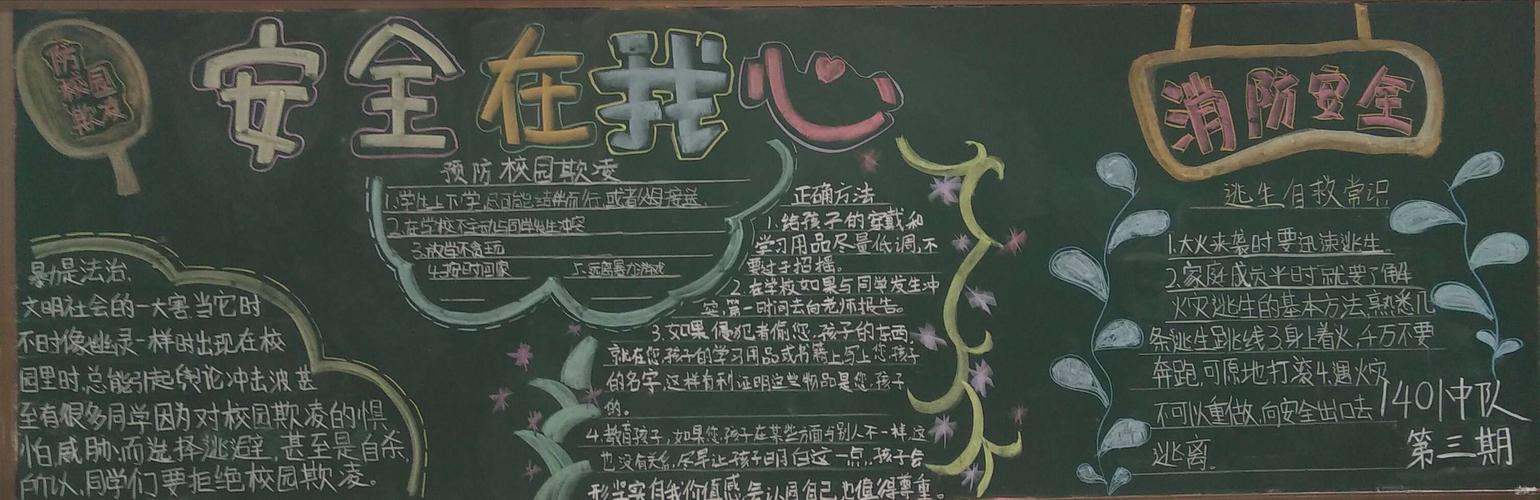 防校园欺凌
安全在我心
消防安全
预防校园欺凌
1.学生上下学,尽可能结伴而行,或者父母接送.
2.在学校不主动与同学发生冲突
3.放学不贪玩
4.按时回家
5.远离暴力游戏
暴力是法治.
文明社会的一大害当它时
不时像幽灵一样时出现在校
园里时,总能引起舆论冲击波甚
至有很多同学因为对校园欺凌的惧
怕,威胁,而选择逃避,甚至是自杀,
所以,同学们要拒绝校园欺凌。
正确方法
1.给孩子的穿戴和
学习用品尽量低调,不
要过于招摇。
2.在学校如果与同学发生冲
突,第一时间去向老师报告。
3.如果侵犯者偷您,孩子的东西,
就在您,孩子的学习用品或书籍上写上您,孩子
的名字,这样有利证明这些物品是您,孩子
的。
4.教育孩子,如果您,孩子在某些方面与别人不一样,这
也没有关系,尽早让孩子明白这一点,孩子会
形坚实自我价值感,会认同自己,也值得尊重。
逃生自救常识
1.大火来袭时要迅速逃生.
2.家庭成员平时就要了解
火灾逃生的基本方法,熟悉几
条逃生路线3身上着火,千万不要
奔跑,可原地打滚4.遇火灾
不可以重做,向安全出口去
逃离.
1401中队
第三期